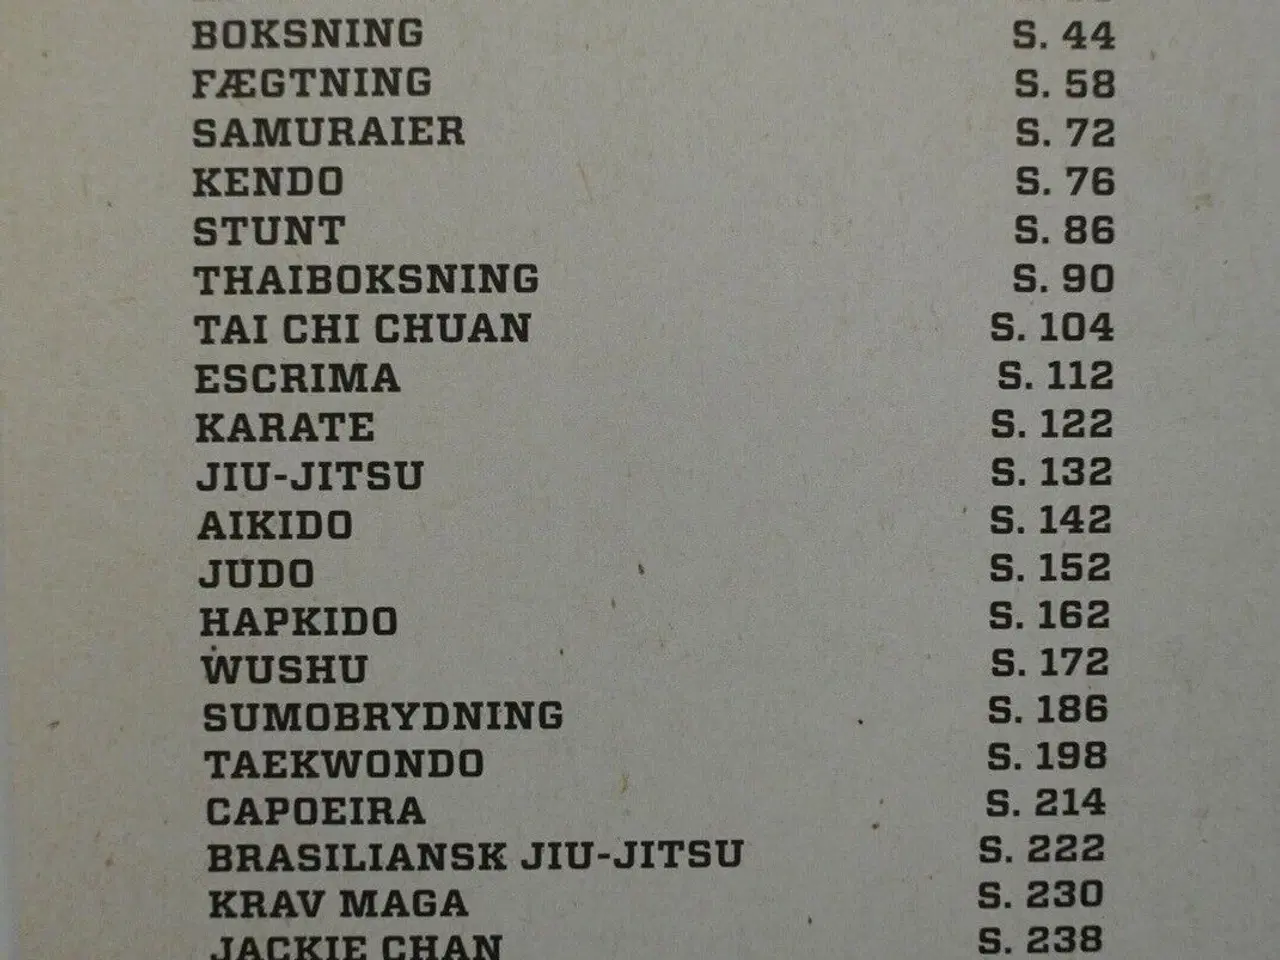 BOKSNING S. 44
FÆGTNING S. 58
SAMURAIER S. 72
KENDO S. 76
STUNT S. 86
THAIBOKSNING S. 90
TAI CHI CHUAN S. 104
ESCRIMA S. 112
KARATE S. 122
JIU-JITSU S. 132
AIKIDO S. 142
JUDO S. 152
HAPKIDO S. 162
WUSHU S. 172
SUMOBRYDNING S. 186
TAEKWONDO S. 198
CAPOEIRA S. 214
BRASILIANSK JIU-JITSU S. 222
KRAV MAGA S. 230
JACKIE CHAN S. 238